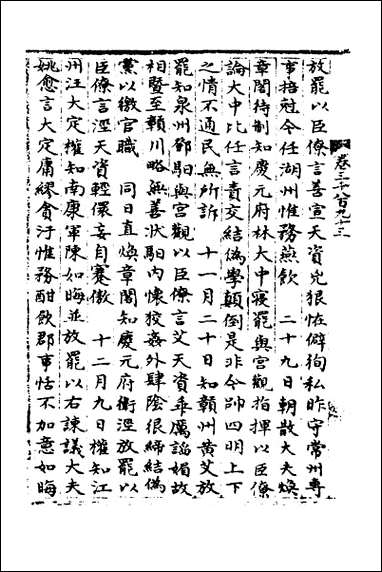 卷三千八百九十三
放罷以臣僚言善宣天資兇狠恠僻狥私昨守常州專
事掊尅今任湖州惟務燕飲　二十九日朝散大夫煥
章閣待制知慶元府林大中寢罷與宮觀指揮以臣僚
論大中比任言責交結偽學顛倒是非今帥四明上下
之情不通民無所訴　十一月二十日知贛州黄艾放
罷知泉州鄧馹與宮觀以臣僚言艾天資乖厲諂媚故
相暨至贛川略無善狀馹内懷狡姦外肆陰很締結偽
黨以徼官職　同日直煥章閣知慶元府衛涇放罷以
臣僚言涇天資輕儇妄自驁傲　十二月九日權知江
州汪大定權知南康軍陳如晦並放罷以右諫議大夫
姚愈言大定庸繆貪汙惟務酣飲郡事恬不加意如晦